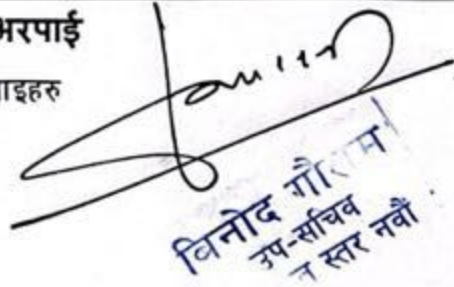 भरपाई
ाइहरु
विनोद गौतम
उप-सचिव
स्तर नवौं